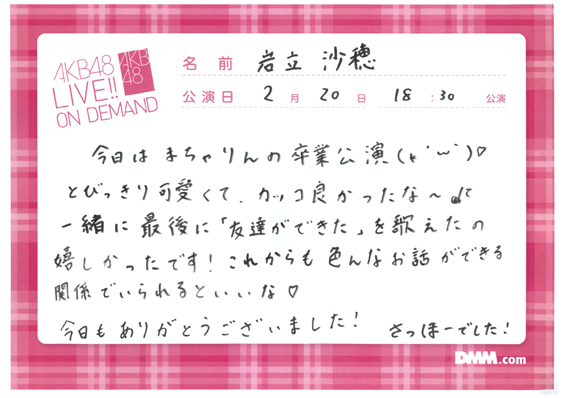 AKB48
LIVE!!
ON DEMAND
AKB
48
名前 岩立 沙穂
公演日 2月 20日 18:30 公演
今日は まちゃりんの 卒業公演(*˙︶˙*)♡
とびっきり可愛くて、カッコ良かったな〜♪
一緒に 最後に「友達ができた」を歌えたの
嬉しかったです! これからも 色んなお話ができる
関係でいられるといいな♡
今日も ありがとうございました! さっほーでした!
DMM.com